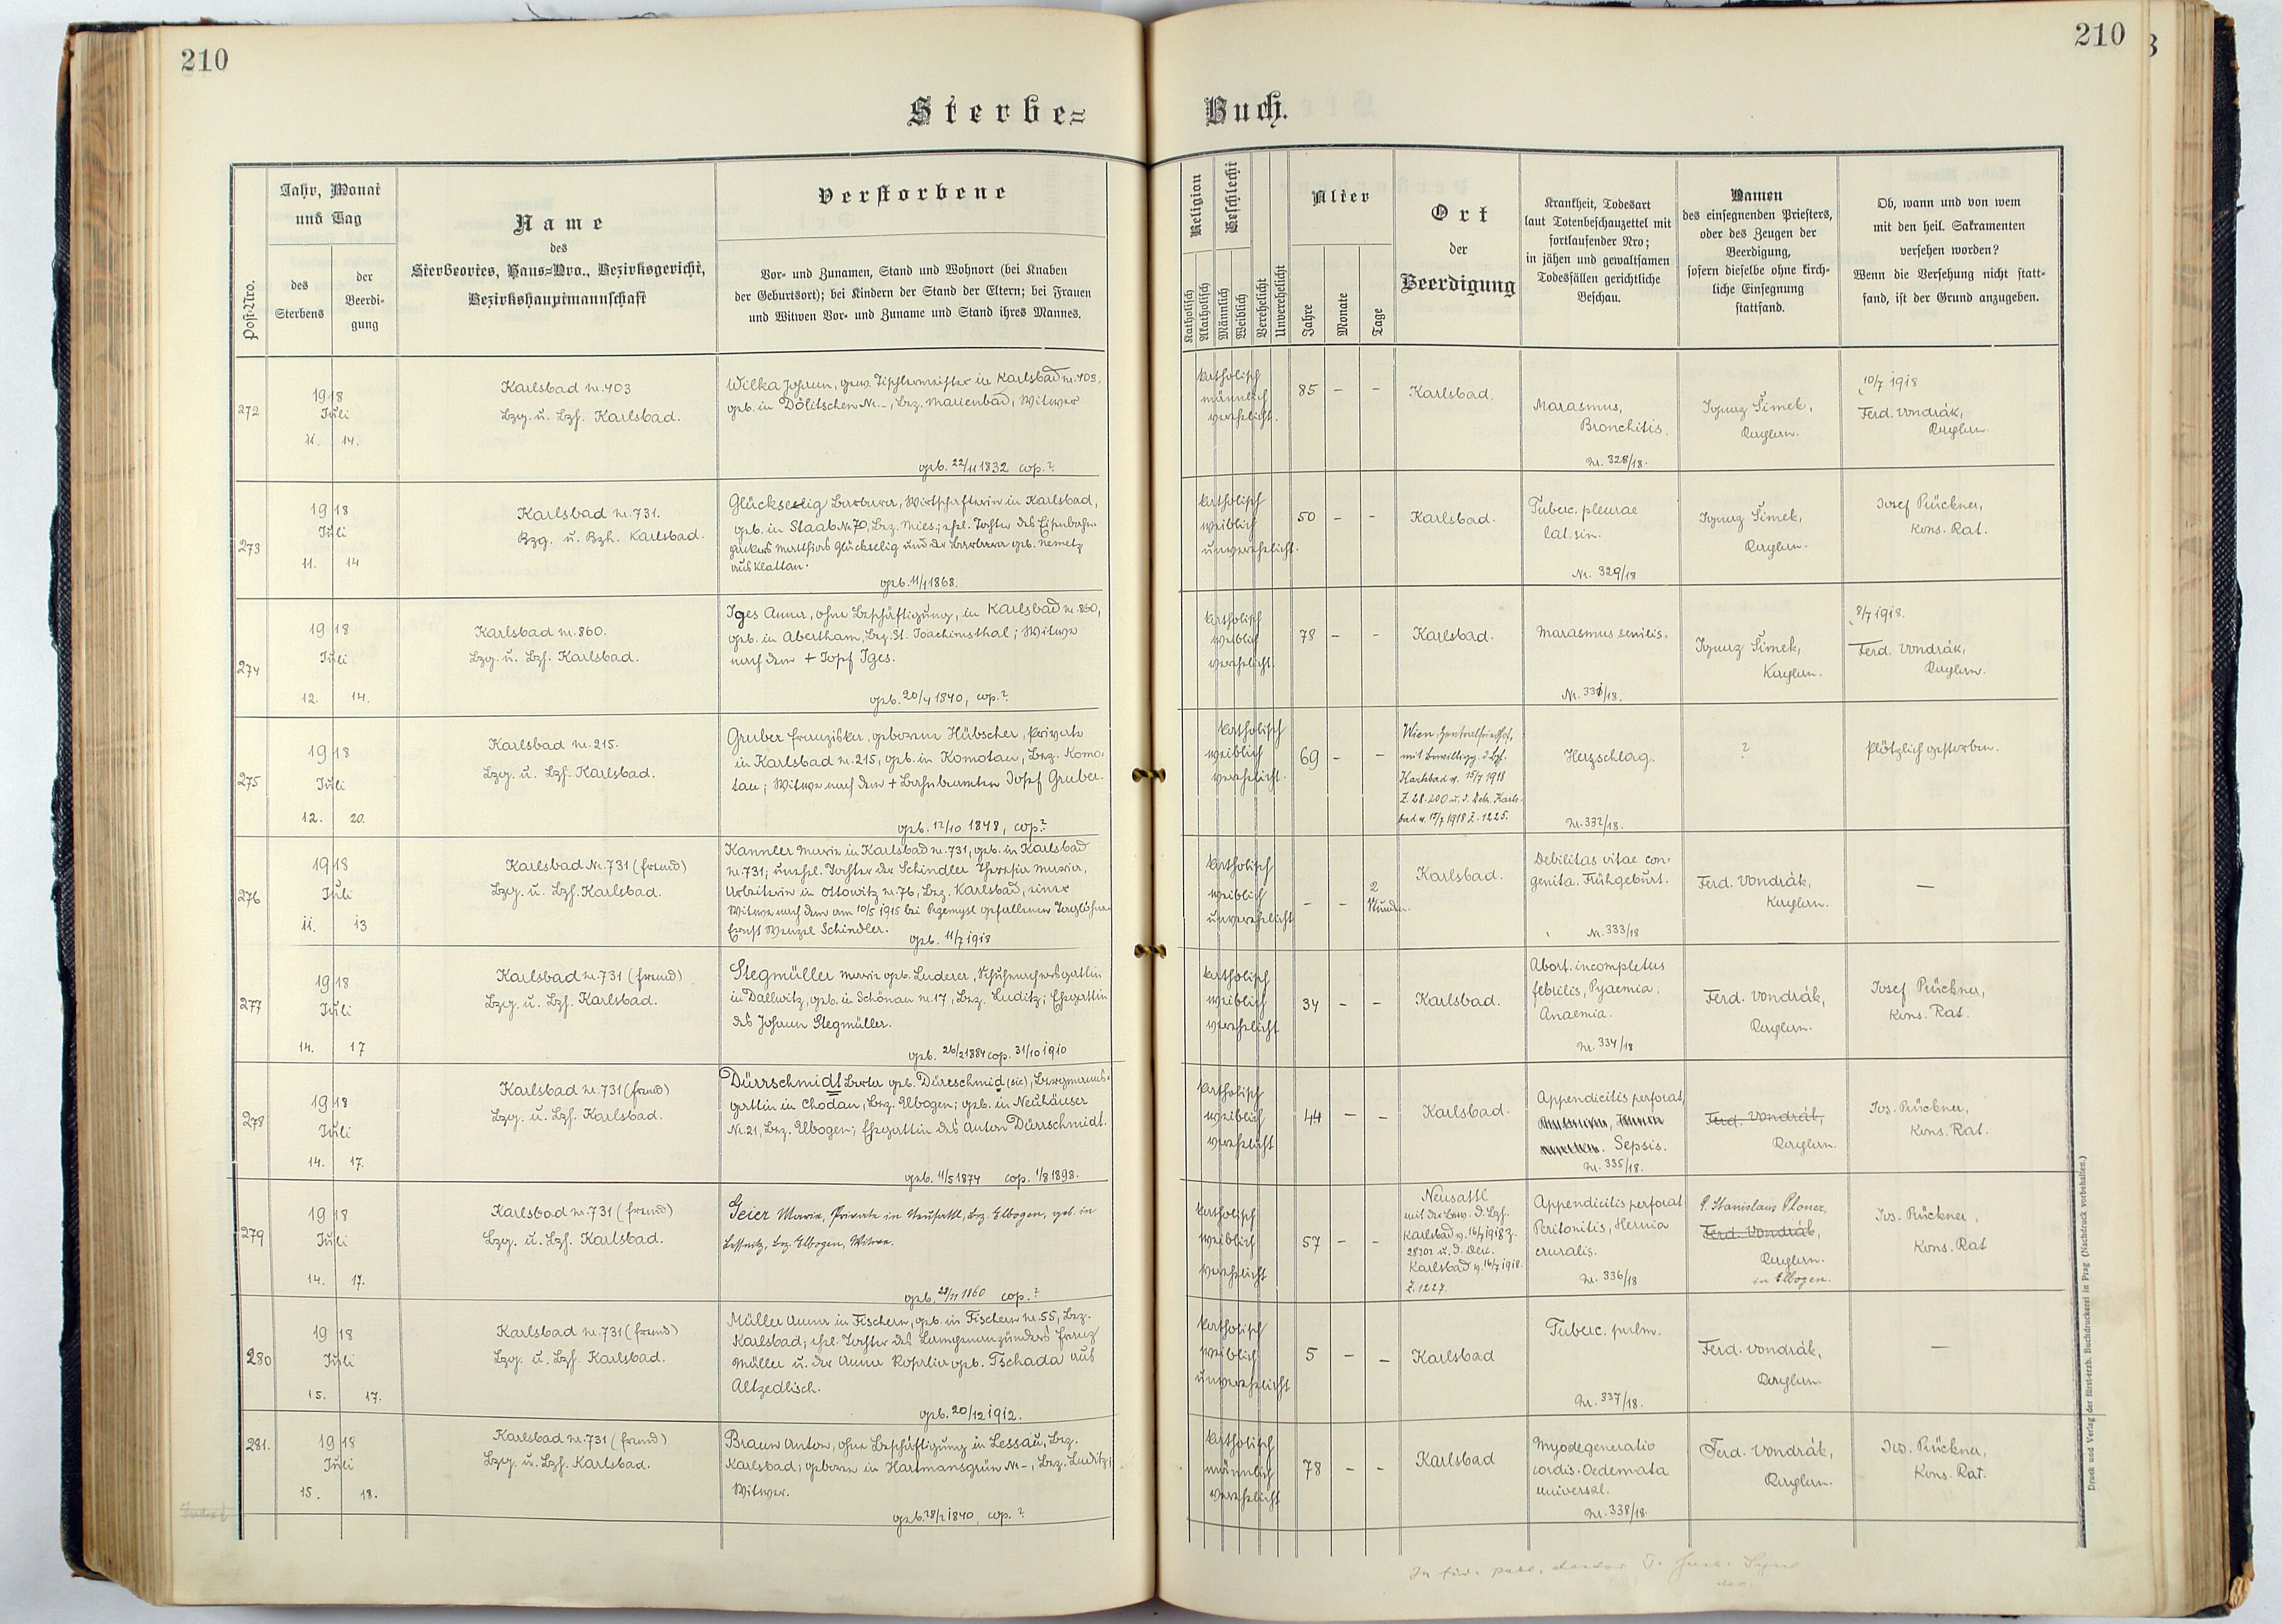 210
210
Sterbe=
Buch.
Post-Nro.
Jahr, Monat
und Tag
des
Sterbens
der
Beerdi-
gung
Name
des
Sterbeortes, Haus=Nro., Bezirksgericht,
Bezirkshauptmannschaft
Verstorbene
Vor- und Zunamen, Stand und Wohnort (bei Knaben
der Geburtsort); bei Kindern der Stand der Eltern; bei Frauen
und Witwen Vor- und Zuname und Stand ihres Mannes.
Religion
Katholisch
Akatholisch
Geschlecht
Männlich
Weiblich
Verehelicht
Unverehelicht
Alter
Jahre
Monate
Tage
Ort
der
Beerdigung
Krankheit, Todesart
laut Totenbeschauzettel mit
fortlaufender Nro;
in jähen und gewaltsamen
Todesfällen gerichtliche
Beschau.
Namen
des einsegnenden Priesters,
oder des Zeugen der
Beerdigung,
sofern dieselbe ohne kirch-
liche Einsegnung
stattfand.
Ob, wann und von wem
mit den heil. Sakramenten
versehen worden?
Wenn die Versehung nicht statt-
fand, ist der Grund anzugeben.
272
1918
Juli
11. 14.
Karlsbad nr. 403
Bzg. u. Bzh. Karlsbad.
Wilka Johann, gew. Tischlermeister in Karlsbad nr. 403,
geb. in Dölitschen Nr. -, Bez. Marienbad, Witwer
geb. 22/11 1832 cop.?
katholisch
männlich
verehelicht.
85 - -
Karlsbad.
Marasmus,
Bronchitis.
Nr. 328/18.
Ignaz Šimek,
Kaplan.
10/7 1918
Ferd. Vondrák,
Kaplan.
273
1918
Juli
11. 14
Karlsbad nr. 731.
Bzg. u. Bzh. Karlsbad.
Glückselig Barbara, Wirtschafterin in Karlsbad,
geb. in Staab Nr 70, Bez. Mies.; ehel. Tochter des Eisenbahn-
packers Matthias Glückselig und der Barbara geb. Nemetz
aus Klattau.
geb. 11/1 1868.
katholisch
weiblich
unverehelicht.
50 - -
Karlsbad.
Tuberc. pleurae
lat. sin.
Nr. 329/18
Ignaz Šimek,
Kaplan.
Josef Rückner,
Kons. Rat.
274
1918
Juli
12. 14.
Karlsbad nr. 860.
Bzg. u. Bzh. Karlsbad.
Iges Anna, ohne Beschäftigung, in Karlsbad nr. 860,
geb. in Abertham, Bez. St. Joachimsthal; Witwe
nach dem + Josef Iges.
geb. 20/4 1840, cop.?
katholisch
weiblich
verehelicht.
78 - -
Karlsbad.
Marasmus senilis.
Nr. 331/18.
Ignaz Šimek,
Kaplan.
8/7 1918.
Ferd. Vondrák,
Kaplan.
275
1918
Juli
12. 20.
Karlsbad nr. 215.
Bzg. u. Bzh. Karlsbad.
Gruber Franziska, geborene Hübscher, Private
in Karlsbad nr. 215, geb. in Komotau, Bez. Komo-
tau; Witwe nach dem + Bahnbeamten Josef Gruber.
geb. 12/10 1848, cop.?
katholisch
weiblich
verehelicht.
69 - -
Wien Zentralfriedhof,
mit Bewilligg. d. Bzh.
Karlsbad v. 15/7 1918
Z. 28.200 u. d. Dek. Karls-
bad v. 15/7 1918 Z. 1225.
Herzschlag.
Nr. 332/18.
?
Plötzlich gestorben.
276
1918
Juli
11. 13
Karlsbad Nr. 731 (fremd)
Bzg. u. Bzh. Karlsbad.
Kannler Maria in Karlsbad nr. 731, geb. in Karlsbad
nr. 731; unehel. Tochter der Schindler Theresia Maria,
Arbeiterin in Ottowitz nr. 76, Bez. Karlsbad, einer
Witwe nach dem am 10/5 1915 bei Przemysl gefallenen Taglöhner
Ernst Wenzel Schindler.
geb. 11/7 1918
katholisch
weiblich
unverehelicht
- - 2 Stunden.
Karlsbad.
Debilitas vitae con-
genita. Frühgeburt.
Nr. 333/18
Ferd. Vondrák,
Kaplan.
—
277
1918
Juli
14. 17
Karlsbad nr. 731 (fremd)
Bzg. u. Bzh. Karlsbad.
Stegmüller Maria geb. Luderer, Schuhmachersgattin
in Dallwitz, geb. in Schönau nr. 17, Bez. Luditz; Ehegattin
des Johann Stegmüller.
geb. 26/2 1884 cop. 31/10 1910
katholisch
weiblich
verehelicht
34 - -
Karlsbad.
Abort. incompletus
febrilis, Pyaemia.
Anaemia.
Nr. 334/18
Ferd. Vondrák,
Kaplan.
Josef Rückner,
Kons. Rat.
278
1918
Juli
14. 17.
Karlsbad nr. 731 (fremd)
Bzg. u. Bzh. Karlsbad.
Dürrschmidt Berta geb. Dürrschmid (sic), Bergmanns-
gattin in Chodau, Bez. Elbogen; geb. in Neuhäuser
Nr. 21, Bez. Elbogen; Ehegattin des Anton Dürrschmidt.
geb. 11/5 1874 cop. 1/8 1898.
katholisch
weiblich
verehelicht
44 - -
Karlsbad.
Appendicitis perforat
Sepsis.
Nr. 335/18.
Ferd. Vondrák,
Kaplan.
Jos. Rückner,
Kons. Rat.
279
1918
Juli
14. 17.
Karlsbad nr. 731 (fremd)
Bzg. u. Bzh. Karlsbad.
Geier Marie, Private in Neusattl, Bez. Elbogen, geb. in
Lessnitz, Bez. Elbogen, Witwe.
geb. 28/11 1860 cop.?
katholisch
weiblich
verehelicht
57 - -
Neusattl
mit der Bew. d. Bzh.
Karlsbad v. 16/7 1918 Z.
28202 u. d. Dek.
Karlsbad v. 16/7 1918.
Z. 1227.
Appendicitis perforat
Peritonitis, Hernia
cruralis.
Nr. 336/18
P. Stanislaus Ploner,
Ferd. Vondrák,
Kaplan.
in Elbogen.
Jos. Rückner,
Kons. Rat
280
1918
Juli
15. 17.
Karlsbad nr. 731 (fremd)
Bzg. u. Bzh. Karlsbad.
Müller Anna in Fischern, geb. in Fischern nr. 55, Bez.
Karlsbad; ehel. Tochter des Lampenanzünders Franz
Müller u. der Anna Rosalia geb. Tschada aus
Altzedlisch.
geb. 20/12 1912.
katholisch
weiblich
unverehelicht
5 - -
Karlsbad
Tuberc. pulm.
Nr. 337/18.
Ferd. Vondrák,
Kaplan.
—
281.
1918
Juli
15. 18.
Karlsbad nr. 731 (fremd)
Bzg. u. Bzh. Karlsbad.
Braun Anton, ohne Beschäftigung in Lessau, Bez.
Karlsbad; geboren in Hartmansgrün Nr -, Bez. Luditz;
Witwer.
geb. 28/2 1840, cop.?
katholisch
männlich
verehelicht
78 - -
Karlsbad
Myodegeneratio
cordis. Oedemata
universal.
Nr. 338/18.
Ferd. Vondrák,
Kaplan.
Jos. Rückner,
Kons. Rat.
Druck und Verlag der fürst-erzb. Buchdruckerei in Prag (Nachdruck vorbehalten.)